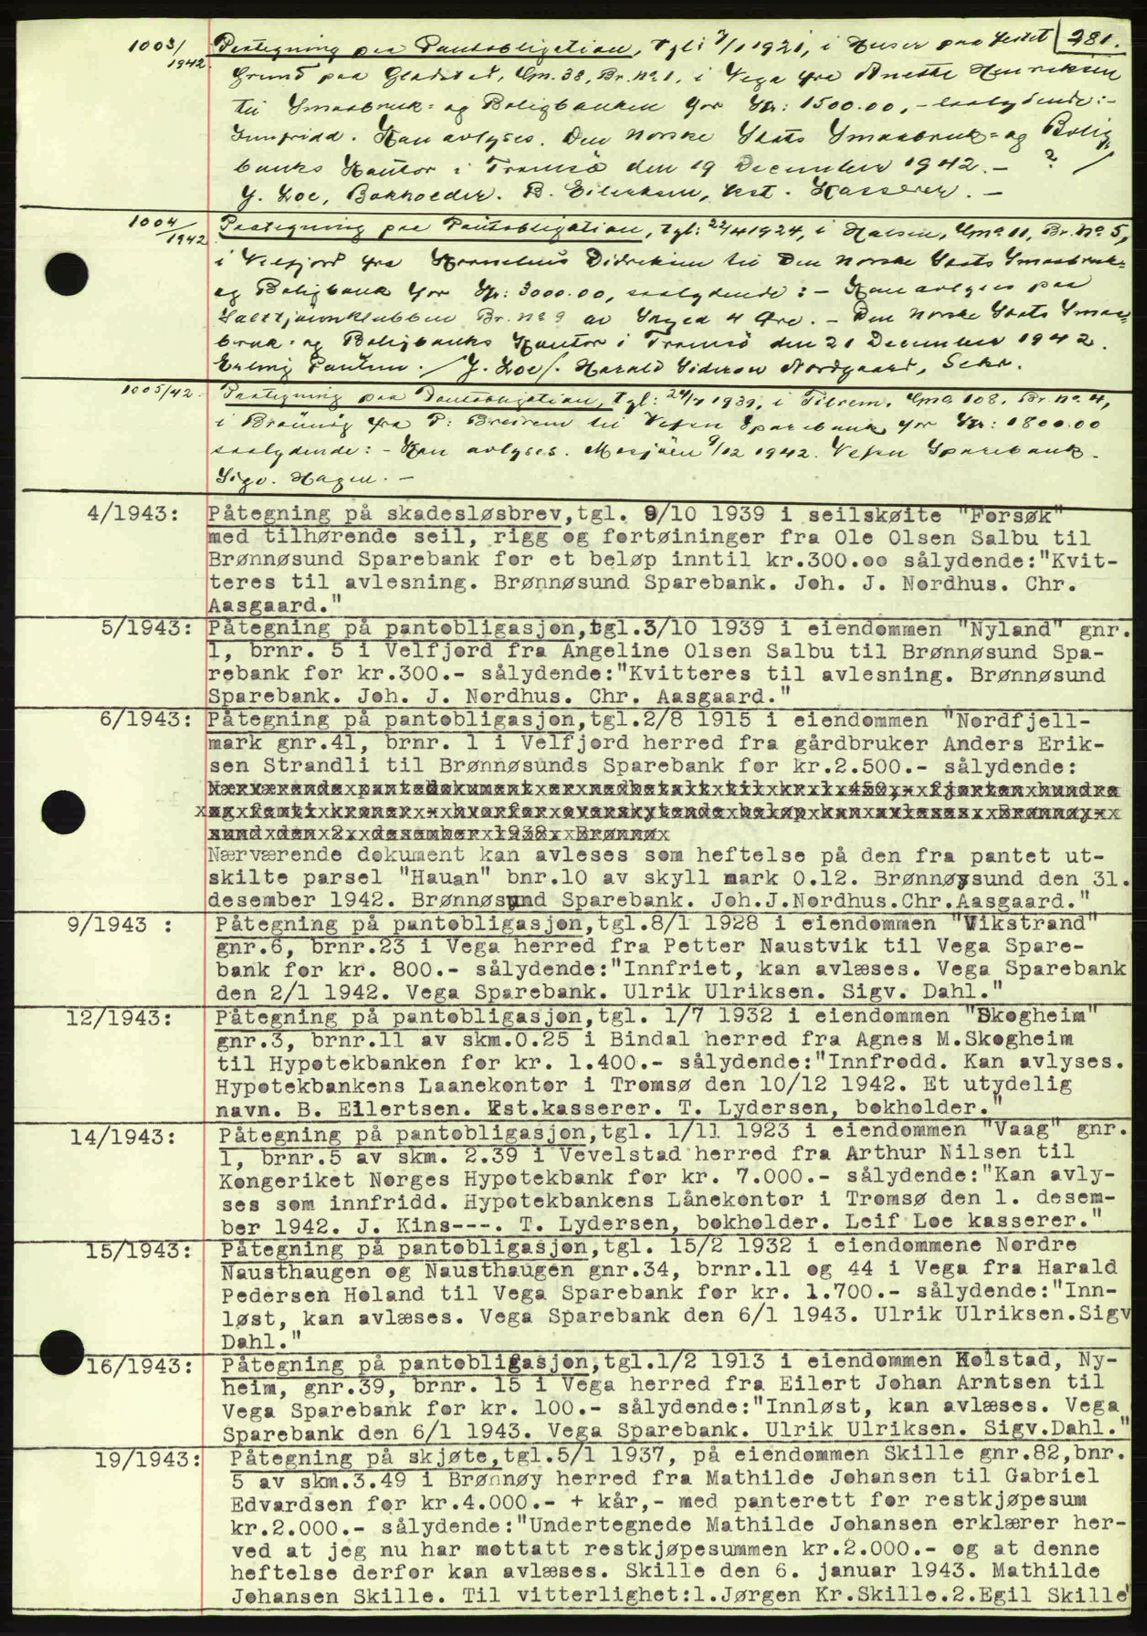 1003/1942. Paategning paa Pantobligation, tgl: 7/1 1921, i Huser paa festet 281.
Grund paa Gladstad, Gm. 38, Br. no 1, i Vega fra Anette Henriksen
til Smaabruk= og Boligbanken for Kr: 1500.00, - saalydende:-
Innfridd. Kan avlyses. Den Norske Stats Smaabruk= og Bolig
banks Kontor i Tromsö den 19 December 1942. - ? /
J. Loe, Bokholder. B. Eilertsen, Kst. Kasserer. -
1004/1942 Paategning paa Pantobligation, tgl: 22/4 1924, i Halsen, Gmo 11, Br. no 5,
i Velfjord fra Kornelius Didriksen til Den Norske Stats Smaabruk=
og Boligbank for Kr: 3000.00, saalydende: - Kan avlyses paa
Br. no 9 av Skyld 4 Øre. - Den Norske Stats Smaa=
bruk- og Boligbanks Kontor i Tromsö den 21 December 1942.
Erling Paulsen. / J. Loe/. Harald Nordgaard, Sekr.
1005/42. Paategning paa Pantobligation, tgl: 24/7 1939, i Tilrem, Gmo 108, Br. no. 4,
i Brönnöy fra P: Breirem til Vefsn Sparebank for Kr: 1800.00
saalydende: - Kan avlyses. Mosjöen 9/12 1942. Vefsn Sparebank.
Sigv. Hagen. -
4/1943: Påtegning på skadesløsbrev,tgl. 9/10 1939 i seilskøite "Forsøk"
med tilhørende seil, rigg og fortøininger fra Ole Olsen Salbu til
Brønnøsund Sparebank for et beløp inntil kr.300.oo sålydende:"Kvit-
teres til avlesning. Brønnøsund Sparebank. Joh. J. Nordhus. Chr.
Aasgaard."
5/1943: Påtegning på pantobligasjon,tgl.3/10 1939 i eiendommen "Nyland" gnr.
1, brnr. 5 i Velfjord fra Angeline Olsen Salbu til Brønnøsund Spa-
rebank for kr.300.- sålydende:"Kvitteres til avlesning. Brønnøsund
Sparebank. Joh. J. Nordhus. Chr. Aasgaard."
6/1943: Påtegning på pantobligasjon,tgl.2/8 1915 i eiendommen "Nordfjell-
mark gnr.41, brnr. 1 i Velfjord herred fra gårdbruker Anders Erik-
sen Strandli til Brønnøsunds Sparebank for kr.2.500.- sålydende:
Nærværende pantedokument er nedbetalt til kr.1.450,- fjorten hundre
og femti kroner - hvorfor overskytende beløp kan avleses. Brønnøy-
sund den 2. desember 1938. Brønnø
Nærværende dokument kan avleses som heftelse på den fra pantet ut-
skilte parsel "Hauan" bnr.10 av skyll mark 0.12. Brønnøysund den 31.
desember 1942. Brønnøsund Sparebank. Joh.J.Nordhus.Chr.Aasgaard."
9/1943 : Påtegning på pantobligasjon,tgl.8/1 1928 i eiendommen "Vikstrand"
gnr.6, brnr.23 i Vega herred fra Petter Naustvik til Vega Spare-
bank for kr. 800.- sålydende:"Innfriet, kan avlæses. Vega Sparebank
den 2/1 1942. Vega Sparebank. Ulrik Ulriksen. Sigv. Dahl."
12/1943: Påtegning på pantobligasjon,tgl. 1/7 1932 i eiendommen "Skogheim"
gnr.3, brnr.11 av skm.0.25 i Bindal herred fra Agnes M.Skogheim
til Hypotekbanken for kr. 1.400.- sålydende:"Innfrødd. Kan avlyses.
Hypotekbankens Laanekontor i Tromsø den 10/12 1942. Et utydelig
navn. B. Eilertsen. Kst.kasserer. T. Lydersen, bokholder."
14/1943: Påtegning på pantobligasjon,tgl. 1/11 1923 i eiendommen "Vaag" gnr.
1, brnr.5 av skm. 2.39 i Vevelstad herred fra Arthur Nilsen til
Kongeriket Norges Hypotekbank for kr. 7.000.- sålydende:"Kan avly-
ses som innfridd. Hypotekbankens Lånekontor i Tromsø den 1. desem-
ber 1942. J. Kins---. T. Lydersen, bokholder. Leif Loe kasserer."
15/1943: Påtegning på pantobligasjon,tgl. 15/2 1932 i eiendommene Nordre
Nausthaugen og Nausthaugen gnr.34, brnr.11 og 44 i Vega fra Harald
Pedersen Høland til Vega Sparebank for kr. 1.700.- sålydende:"Inn-
løst, kan avlæses. Vega Sparebank den 6/1 1943. Ulrik Ulriksen.Sigv
Dahl."
16/1943: Påtegning på pantobligasjon,tgl.1/2 1913 i eiendommen Kolstad, Ny-
heim, gnr.39, brnr. 15 i Vega herred fra Eilert Johan Arntsen til
Vega Sparebank for kr. 100.- sålydende:"Innløst, kan avlæses. Vega
Sparebank den 6/1 1943. Vega Sparebank. Ulrik Ulriksen. Sigv.Dahl."
19/1943: Påtegning på skjøte,tgl.5/1 1937, på eiendommen Skille gnr.82,bnr.
5 av skm.3.49 i Brønnøy herred fra Mathilde Johansen til Gabriel
Edvardsen for kr.4.000.- + kår,- med panterett for restkjøpesum
kr.2.000.- sålydende:"Undertegnede Mathilde Johansen erklærer her-
ved at jeg nu har mottatt restkjøpesummen kr.2.000.- og at denne
heftelse derfor kan avlæses. Skille den 6. januar 1943. Mathilde
Johansen Skille. Til vitterlighet:1.Jørgen Kr.Skille.2.Egil Skille"